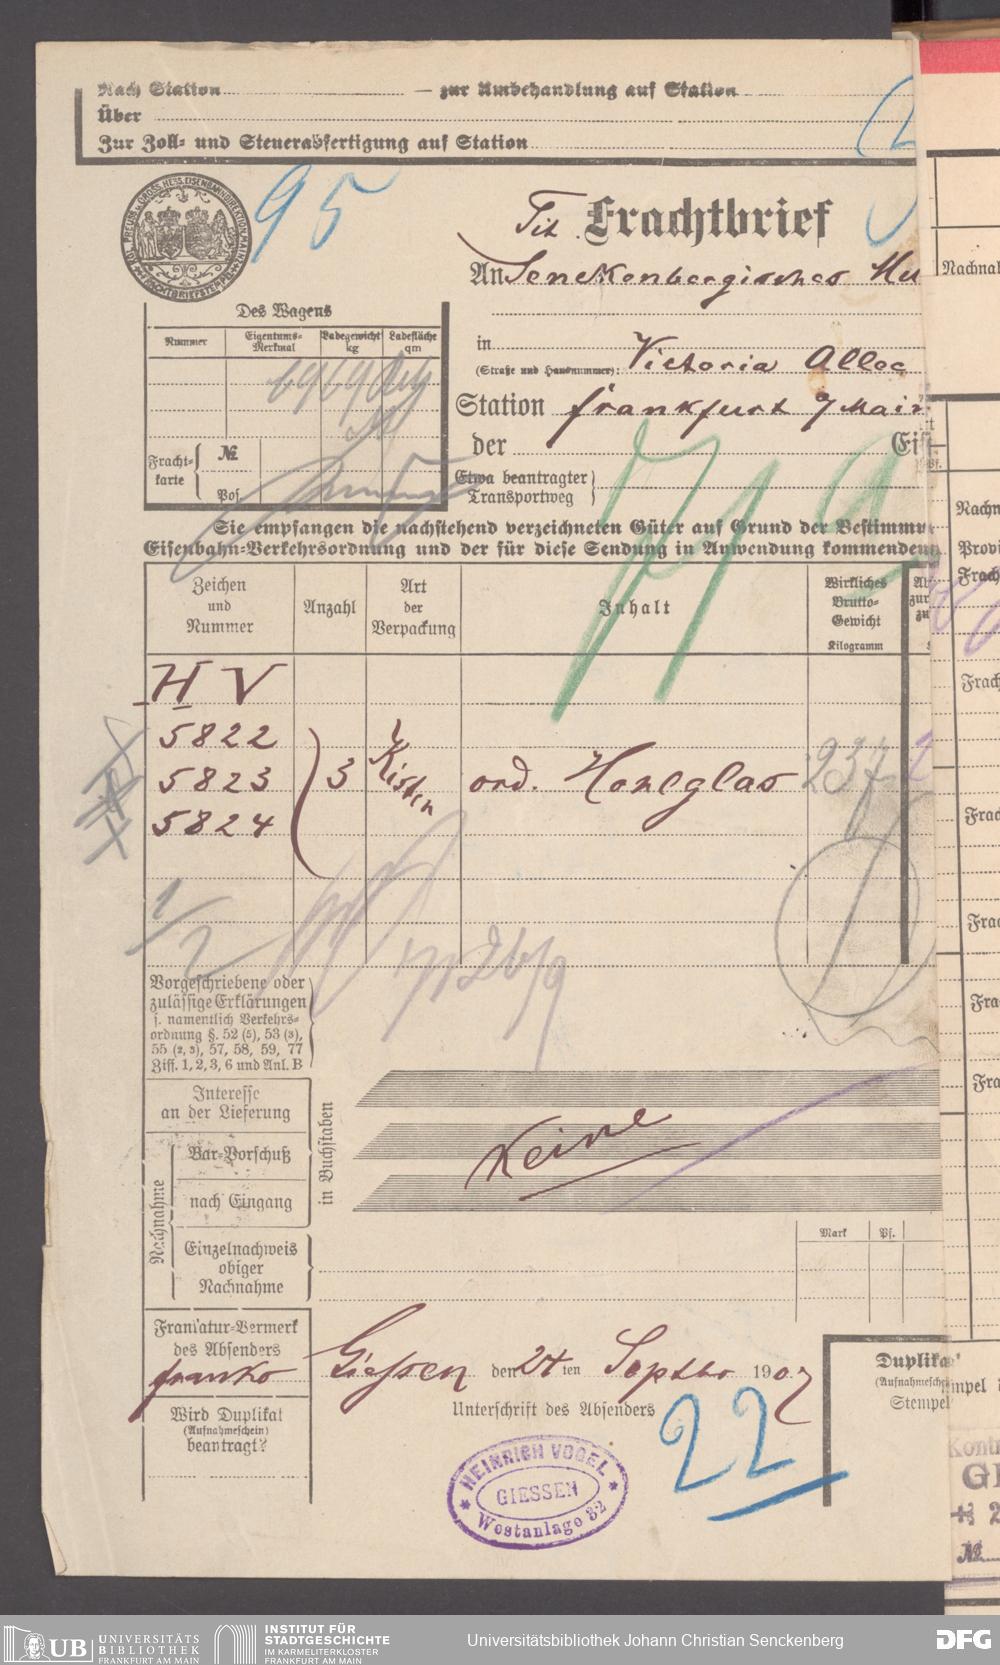 Nach Station — zur Umbehandlung auf Station
Über
Zur Zoll- und Steuerabfertigung auf Station
95
Tit. Frachtbrief
An Senckenbergisches Mu
in
(Straße und Hausnummer): Victoria Allee
Station Frankfurt / Main
der Ei
Etwa beantragter
Transportweg
Des Wagens
Nummer
Eigentums-Merkmal
Ladegewicht kg
Ladefläche qm
Fracht-karte
№
Pos.
Sie empfangen die nachstehend verzeichneten Güter auf Grund der Bestimmu
Eisenbahn-Verkehrsordnung und der für diese Sendung in Anwendung kommenden
Zeichen und Nummer
Anzahl
Art der Verpackung
Inhalt
Wirkliches Brutto-Gewicht Kilogramm
H V
5822
5823 3 Kisten ord. Hohlglas 237
5824
1/2
Vorgeschriebene oder
zulässige Erklärungen
s. namentlich Verkehrs-
ordnung §. 52 (5), 53 (3),
55 (2, 3), 57, 58, 59, 77
Ziff. 1, 2, 3, 6 und Anl. B
Interesse
an der Lieferung
in Buchstaben
Keine
Nachnahme
Bar-Vorschuß
nach Eingang
Einzelnachweis
obiger
Nachnahme
Mark Pf.
Frankatur-Vermerk
des Absenders
franko
Giessen den 24ten Septbr 1907
Wird Duplikat
(Aufnahmeschein)
beantragt?
Unterschrift des Absenders
22
HEINRICH VOGEL
GIESSEN
Westanlage 32
Duplika
Stempel
Nachna
Nachn
Provi
Frach
Frach
Frac
Frac
Fra
Fra
mpel
Kontr
GI
№
UB UNIVERSITÄTS
BIBLIOTHEK
FRANKFURT AM MAIN
INSTITUT FÜR
STADTGESCHICHTE
IM KARMELITERKLOSTER
FRANKFURT AM MAIN
Universitätsbibliothek Johann Christian Senckenberg
DFG